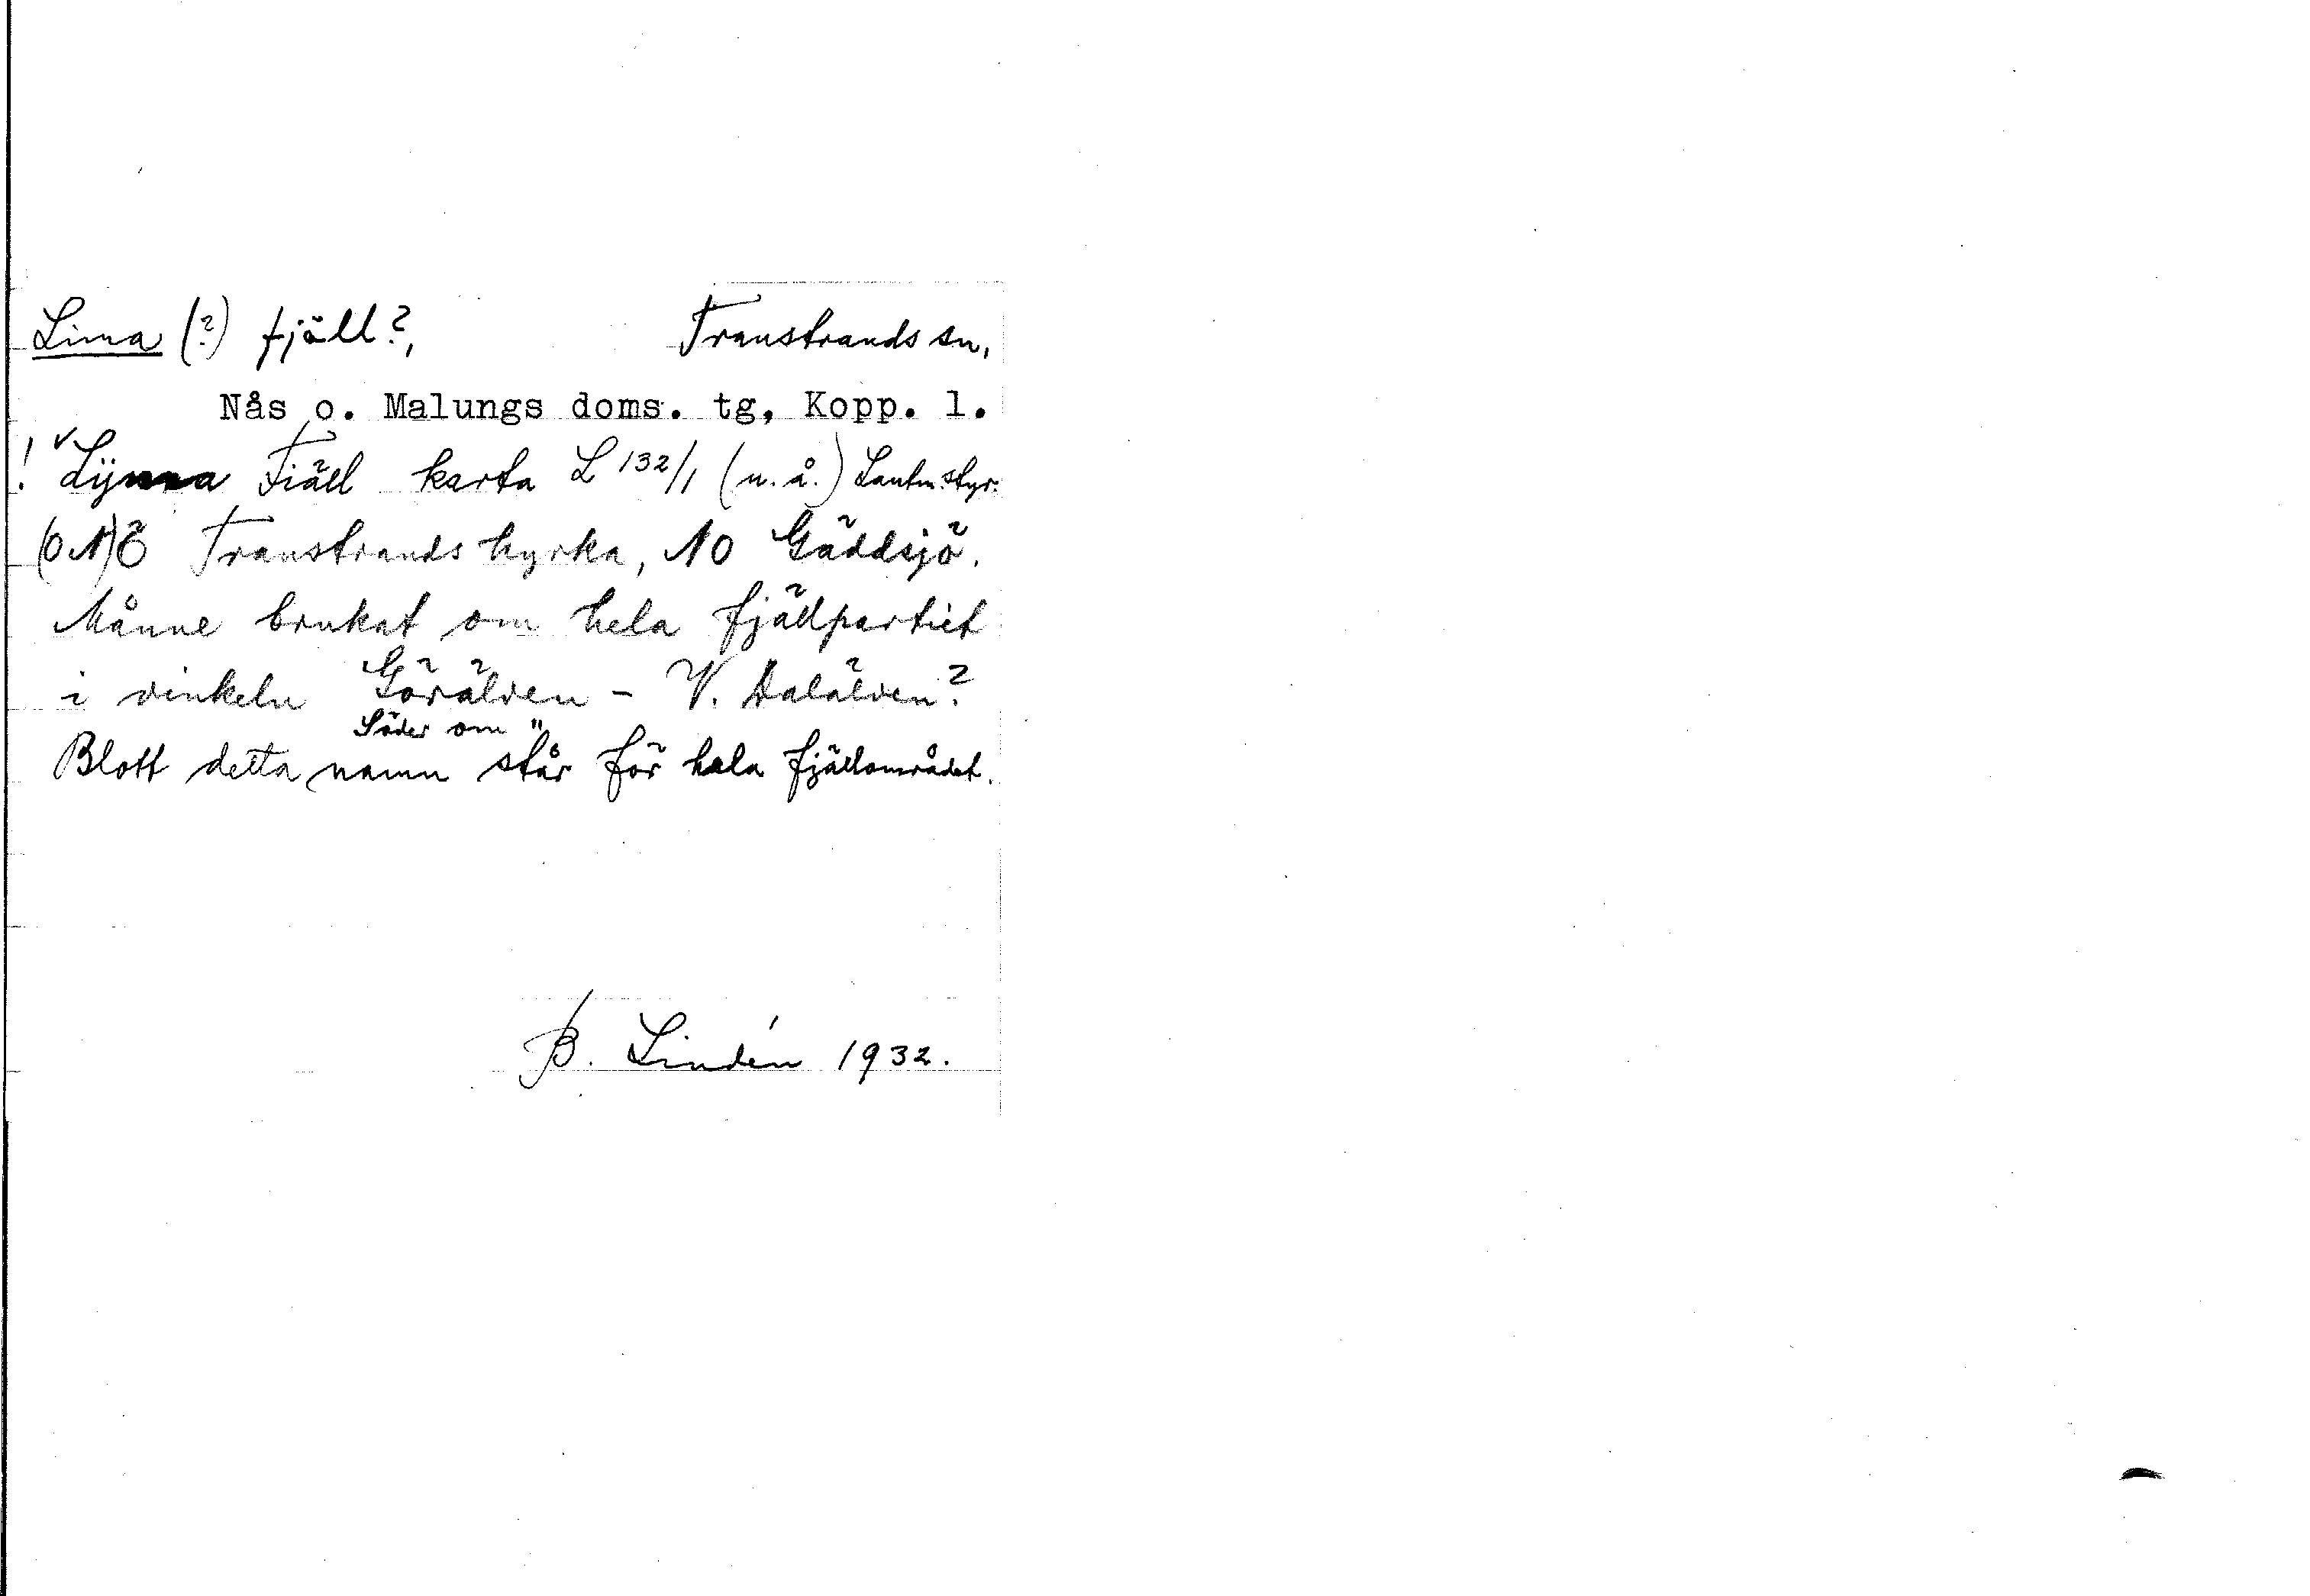 Lima (?) fjäll?, Transtrands sn,
Nås o. Malungs doms. tg, Kopp. l.
! Lijma Fiäll karta L 132/1 (u. å.) Lantm.styr.
(ON)Ö Transtrands kyrka, NO Gäddsjö.
Månne brukat om hela fjällpartiet
i vinkeln Görälven - V. Dalälven?
Söder om "
Blott detta namn står för hela fjällområdet.
B. Lindén 1932.